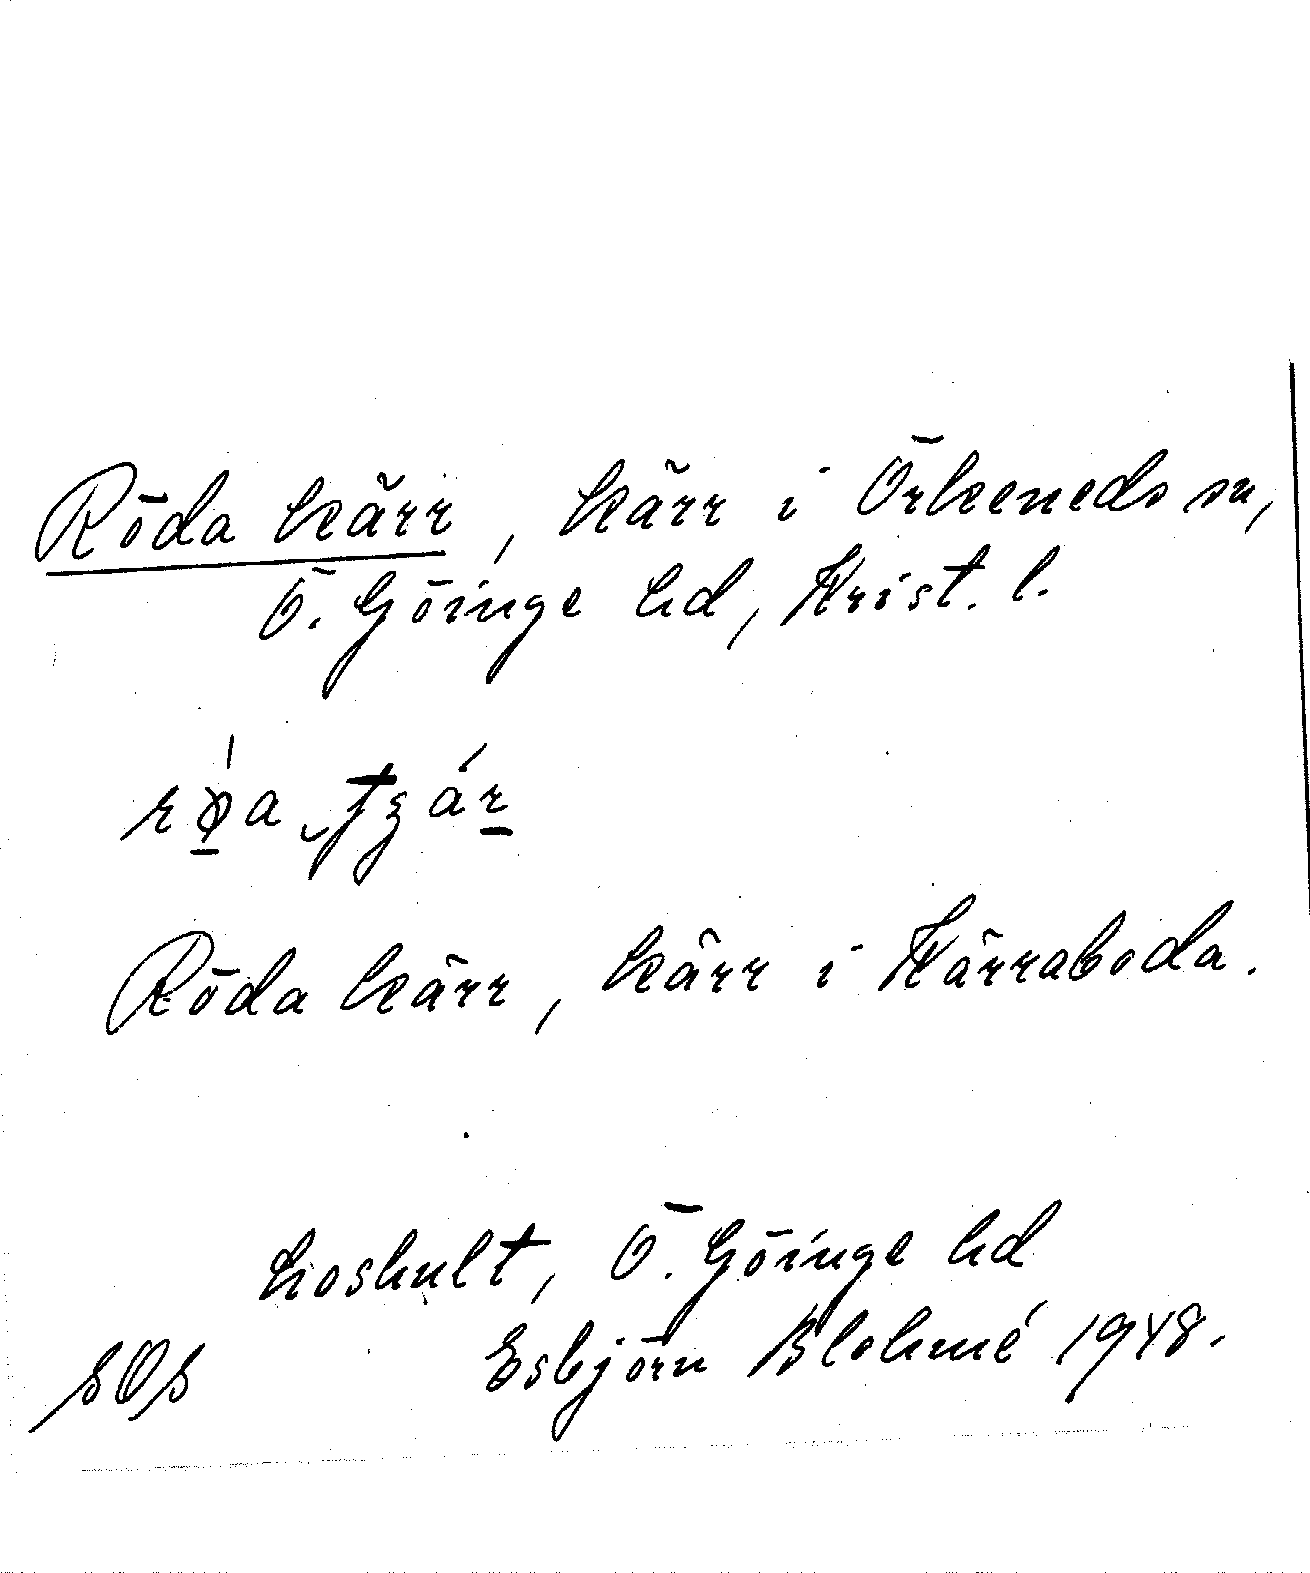 Röda kärr, kärr i Örkeneds sn,
Ö. Göinge hd, Krist. l.
Röda kärr, kärr i Kärraboda.
Loshult, Ö. Göinge hd
SOS Esbjörn Blohmé 1948.